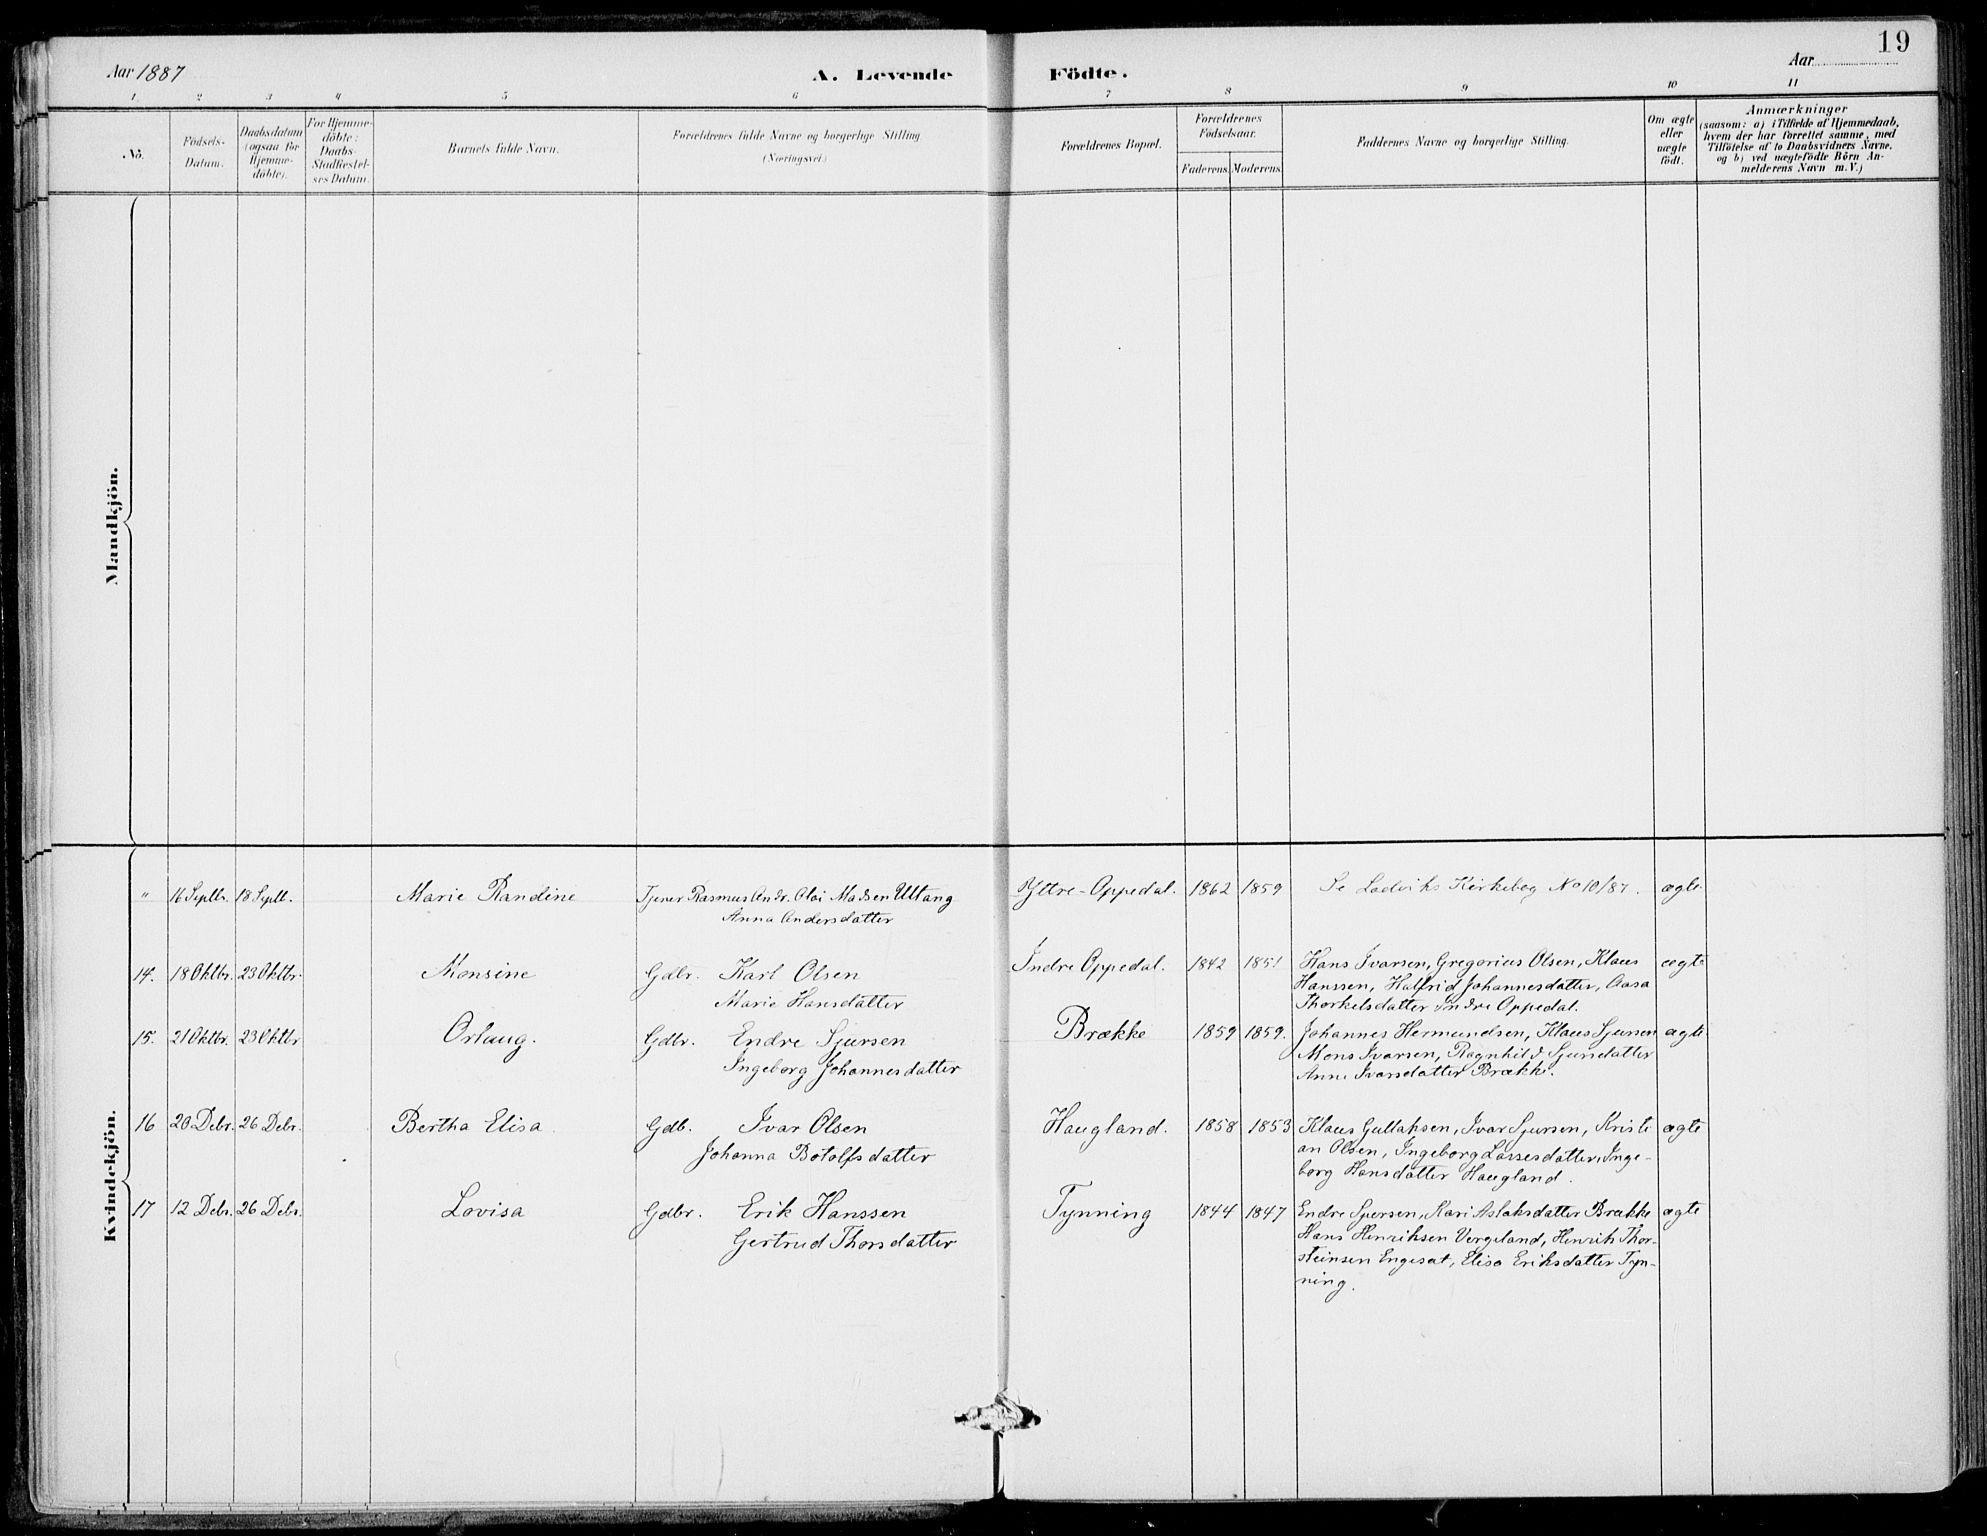 19
Aar 1887
A. Levende Födte.
Aar
1 2 3 4 5 6 7 8 9 10 11
No.
Födsels-Datum.
Daabsdatum (ogsaa for Hjemme-döbte).
For Hjemme-döbte: Daabs-Stadfæstel-ses Datum.
Barnets fulde Navn.
Forældrenes fulde Navne og borgerlige Stilling
(Næringsvei.)
Forældrenes Bopæl.
Forældrenes Födselsaar.
Faderens. Moderens.
Faddernes Navne og borgerlige Stilling.
Om ægte eller uægte födt.
Anmærkninger
(saasom: a) i Tilfælde af Hjemmedaab,
hvem der har forrettet samme, med
Tilföielse af to Daabsvidners Navne,
og b) ved uægtefödte Börn An-
melderens Navn m.V.)
Mandkjön.
Kvindekjön.
" 16 Septbr. 18 Septb. Marie Randine Tjener Rasmus Andr. Olai Madsen Ultang Yttre-Oppedal. 1862 1859 Se Ladviks Kirkebog No 10/87. ægte
Anna Andersdatter
14. 18 Oktbr. 23 Oktbr. Monsine Gdbr. Karl Olsen Indre Oppedal. 1842 1851 Hans Ivarsen, Gregorius Olsen, Klaus ægte
Marie Hansdatter Hanssen, Halfrid Johannesdatter, Aasa
Thorkelsdatter Indre Oppedal.
15. 21 Oktbr. 23 Oktbr Orlaug. Gdbr. Endre Sjursen Brække 1859 1859. Johannes Hermundsen, Klaus Sjursen ægte
Ingeborg Johannesdatter Mons Ivarsen, Ragnhild Sjursdatter
Anne Ivarsdatter Brække.
16 20 Debr. 26 Debr. Bertha Elisa Gdb. Ivar Olsen Haugland. 1858 1853 Klaus Gullaksen, Ivar Sjursen, Kristi ægte
Johanna Botolfsdatter an Olsen, Ingeborg Lassesdatter, Inge-
borg Hansdatter Haugland.
17 12 Debr. 26 Debr. Lovisa Gdbr. Erik Hanssen Tynning 1844 1847 Endre Sjursen, Kari Aslaksdatter Brække ægte
Gertrud Thorsdatter Hans Henriksen Vergeland, Henrik Thor-
steinsen Engesæt, Elisa Eriksdatter Tyn-
ning.